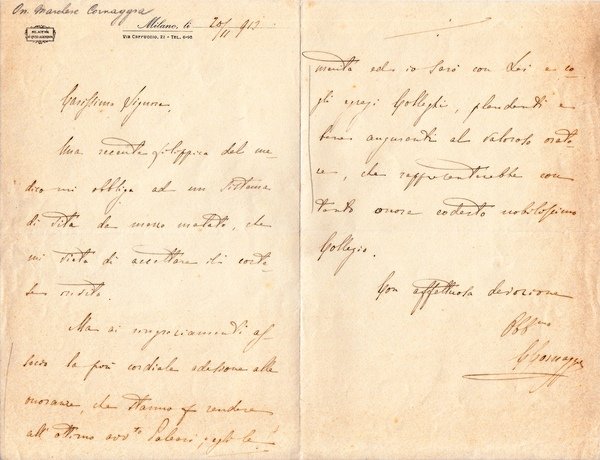 On. Marchese Cornaggia
Milano, li 20/11 913
Via Cappuccio, 21 - Tel. 6-95
Carissimo Signore,
Una recente filippica del me-
dico mi obbliga ad un sistema
di vita da mezzo malato, che
mi vieta di accettare il corte-
se invito.
Ma ai ringraziamenti as-
socio la più cordiale adesione alle
onoranze, che stanno per rendere
all'ottimo avv.to
mente ed io sarò con Lei e co-
gli egregi Colleghi, plaudenti e
bene auguranti al valoroso orato-
re, che rappresenterebbe con
tanto onore codesto nobilissimo
Collegio.
Con affettuosa devozione
Obb.mo
CCornaggia